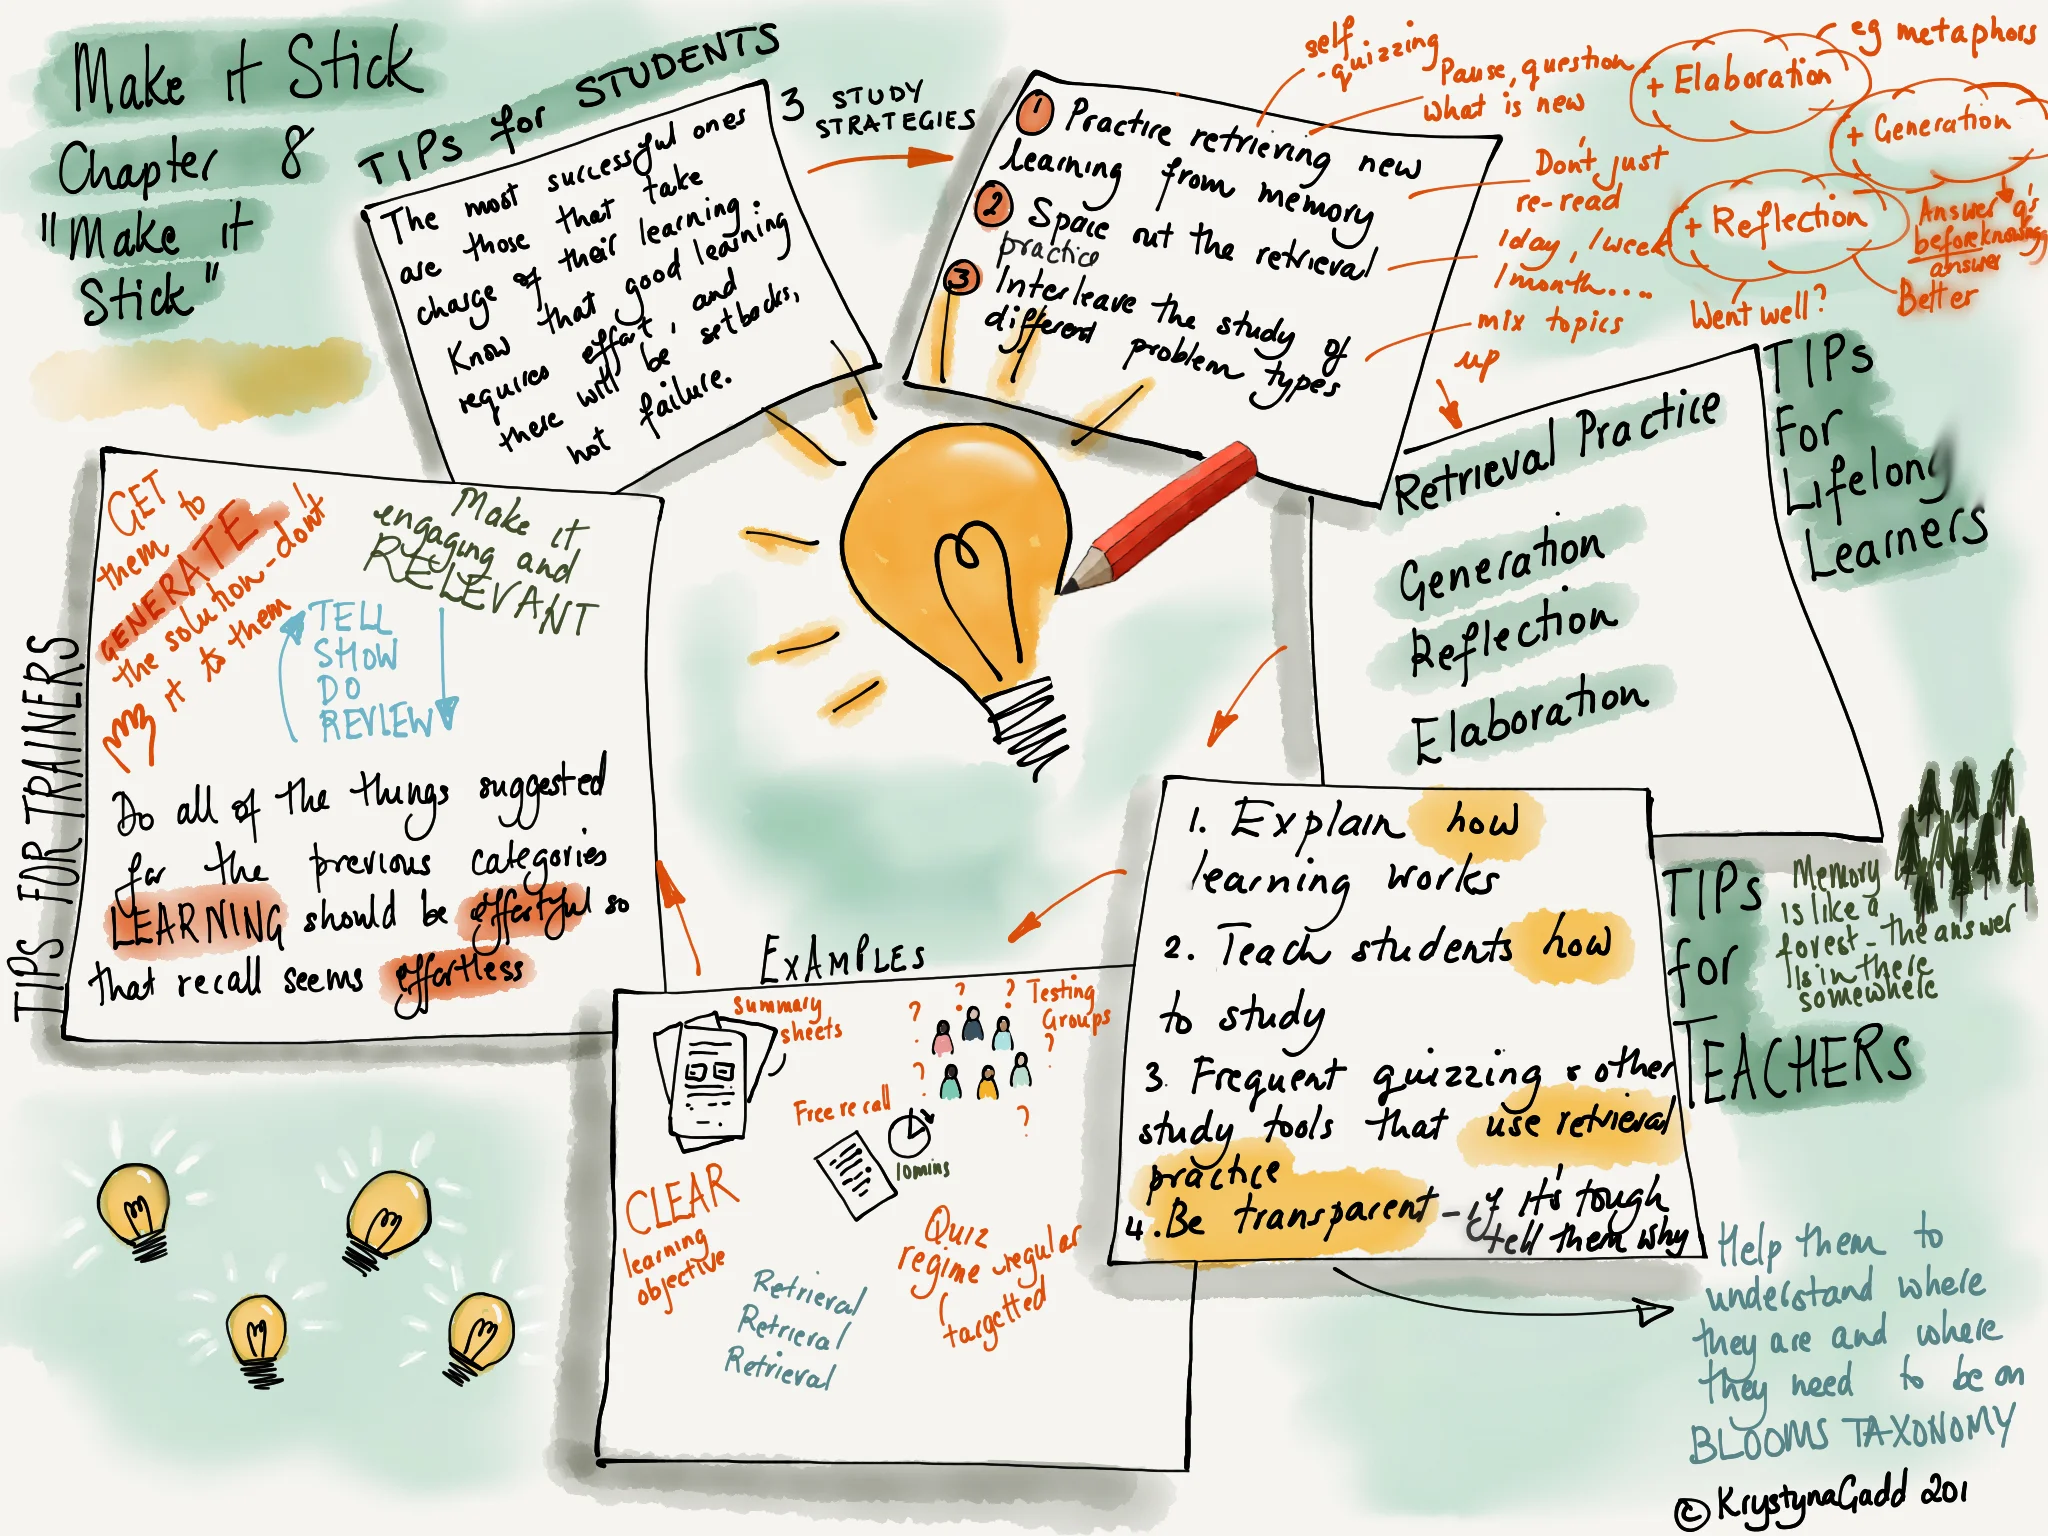 Make it Stick
Chapter 8
"Make it
Stick"
TIPs for STUDENTS
The most successful ones
are those that take
charge of their learning.
Know that good learning
requires effort, and
there will be setbacks,
not failure.
3 STUDY
STRATEGIES
1 Practice retrieving new
learning from memory
2 Space out the retrieval
practice
3 Interleave the study of
different problem types
self
-quizzing
Pause, question
what is new
Don't just
re-read
1day, 1week
1month....
mix topics
up
+ Elaboration
eg metaphors
+ Generation
Answer q's
before knowing
answer
+ Reflection
Went well?
Better
TIPs
For
Lifelong
Learners
Retrieval Practice
Generation
Reflection
Elaboration
TIPs
for
TEACHERS
Memory
is like a
forest - the answer
is in there
somewhere
1. Explain how
learning works
2. Teach students how
to study
3. Frequent quizzing & other
study tools that use retrieval
practice
4. Be transparent - if it's tough
tell them why
Help them to
understand where
they are and where
they need to be on
BLOOMS TAXONOMY
EXAMPLES
summary
sheets
Testing
Groups
Free recall
10mins
CLEAR
learning
objective
Quiz
regime - regular
targetted
Retrieval
Retrieval
Retrieval
TIPS FOR TRAINERS
GET
them to
GENERATE
the solution - don't
it to them
Make it
engaging and
RELEVANT
TELL
SHOW
DO
REVIEW
Do all of the things suggested
for the previous categories
LEARNING should be effortful so
that recall seems effortless
© KrystynaGadd 201